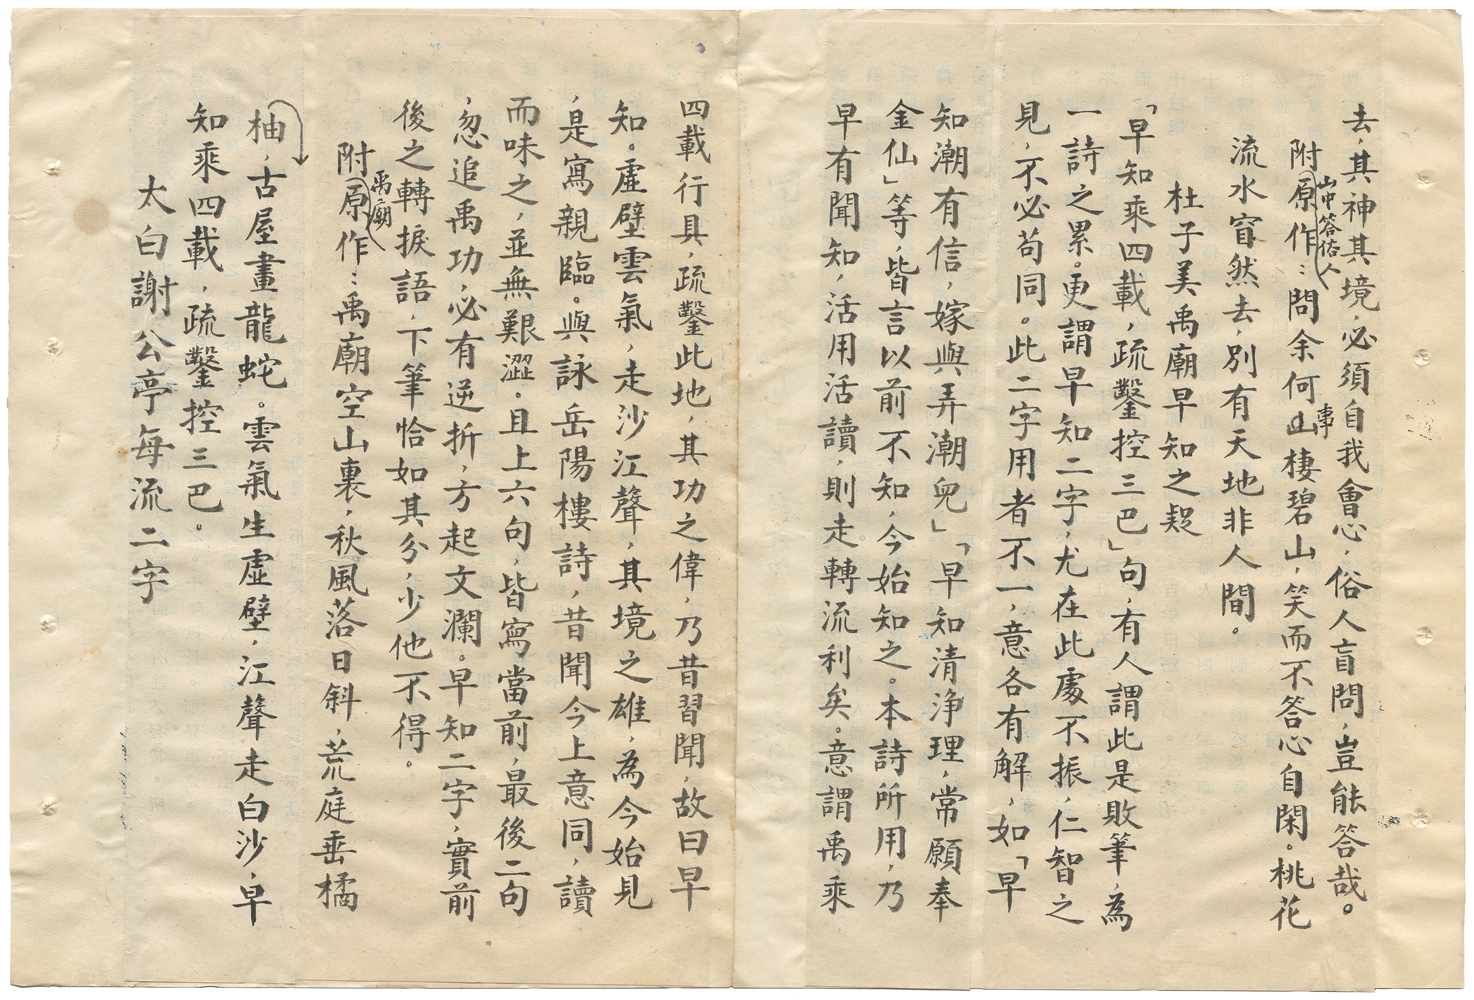 去，其神其境，必須自我會心，俗人盲問，豈能答哉。
附（原作：山中答俗人）問余何事棲碧山，笑而不答心自閑。桃花
流水窅然去，別有天地非人間。
杜子美禹廟早知之疑
「早知乘四載，疏鑿控三巴」句，有人謂此是敗筆，為
一詩之累。更謂早知二字，尤在此處不振，仁智之
見，不必苟同。此二字用者不一，意各有解，如「早
知潮有信，嫁與弄潮兒」「早知清淨理，常願奉
金仙」等，皆言以前不知，今始知之。本詩所用，乃
早有聞知，活用活讀，則走轉流利矣。意謂禹乘
四載行具，疏鑿此地，其功之偉，乃昔習聞，故曰早
知。虛壁雲氣，走沙江聲，其境之雄，為今始見
，是寫親臨。與詠岳陽樓詩，昔聞今上意同，讀
而味之，並無艱澀。且上六句，皆寫當前，最後二句
，忽追禹功，必有逆折，方起文瀾。早知二字，實前
後之轉捩語，下筆恰如其分，少他不得。
附（原作：禹廟）禹廟空山裏，秋風落日斜，荒庭垂橘
柚，古屋畫龍蛇。雲氣生虛壁，江聲走白沙，早
知乘四載，疏鑿控三巴。
太白謝公亭每流二字